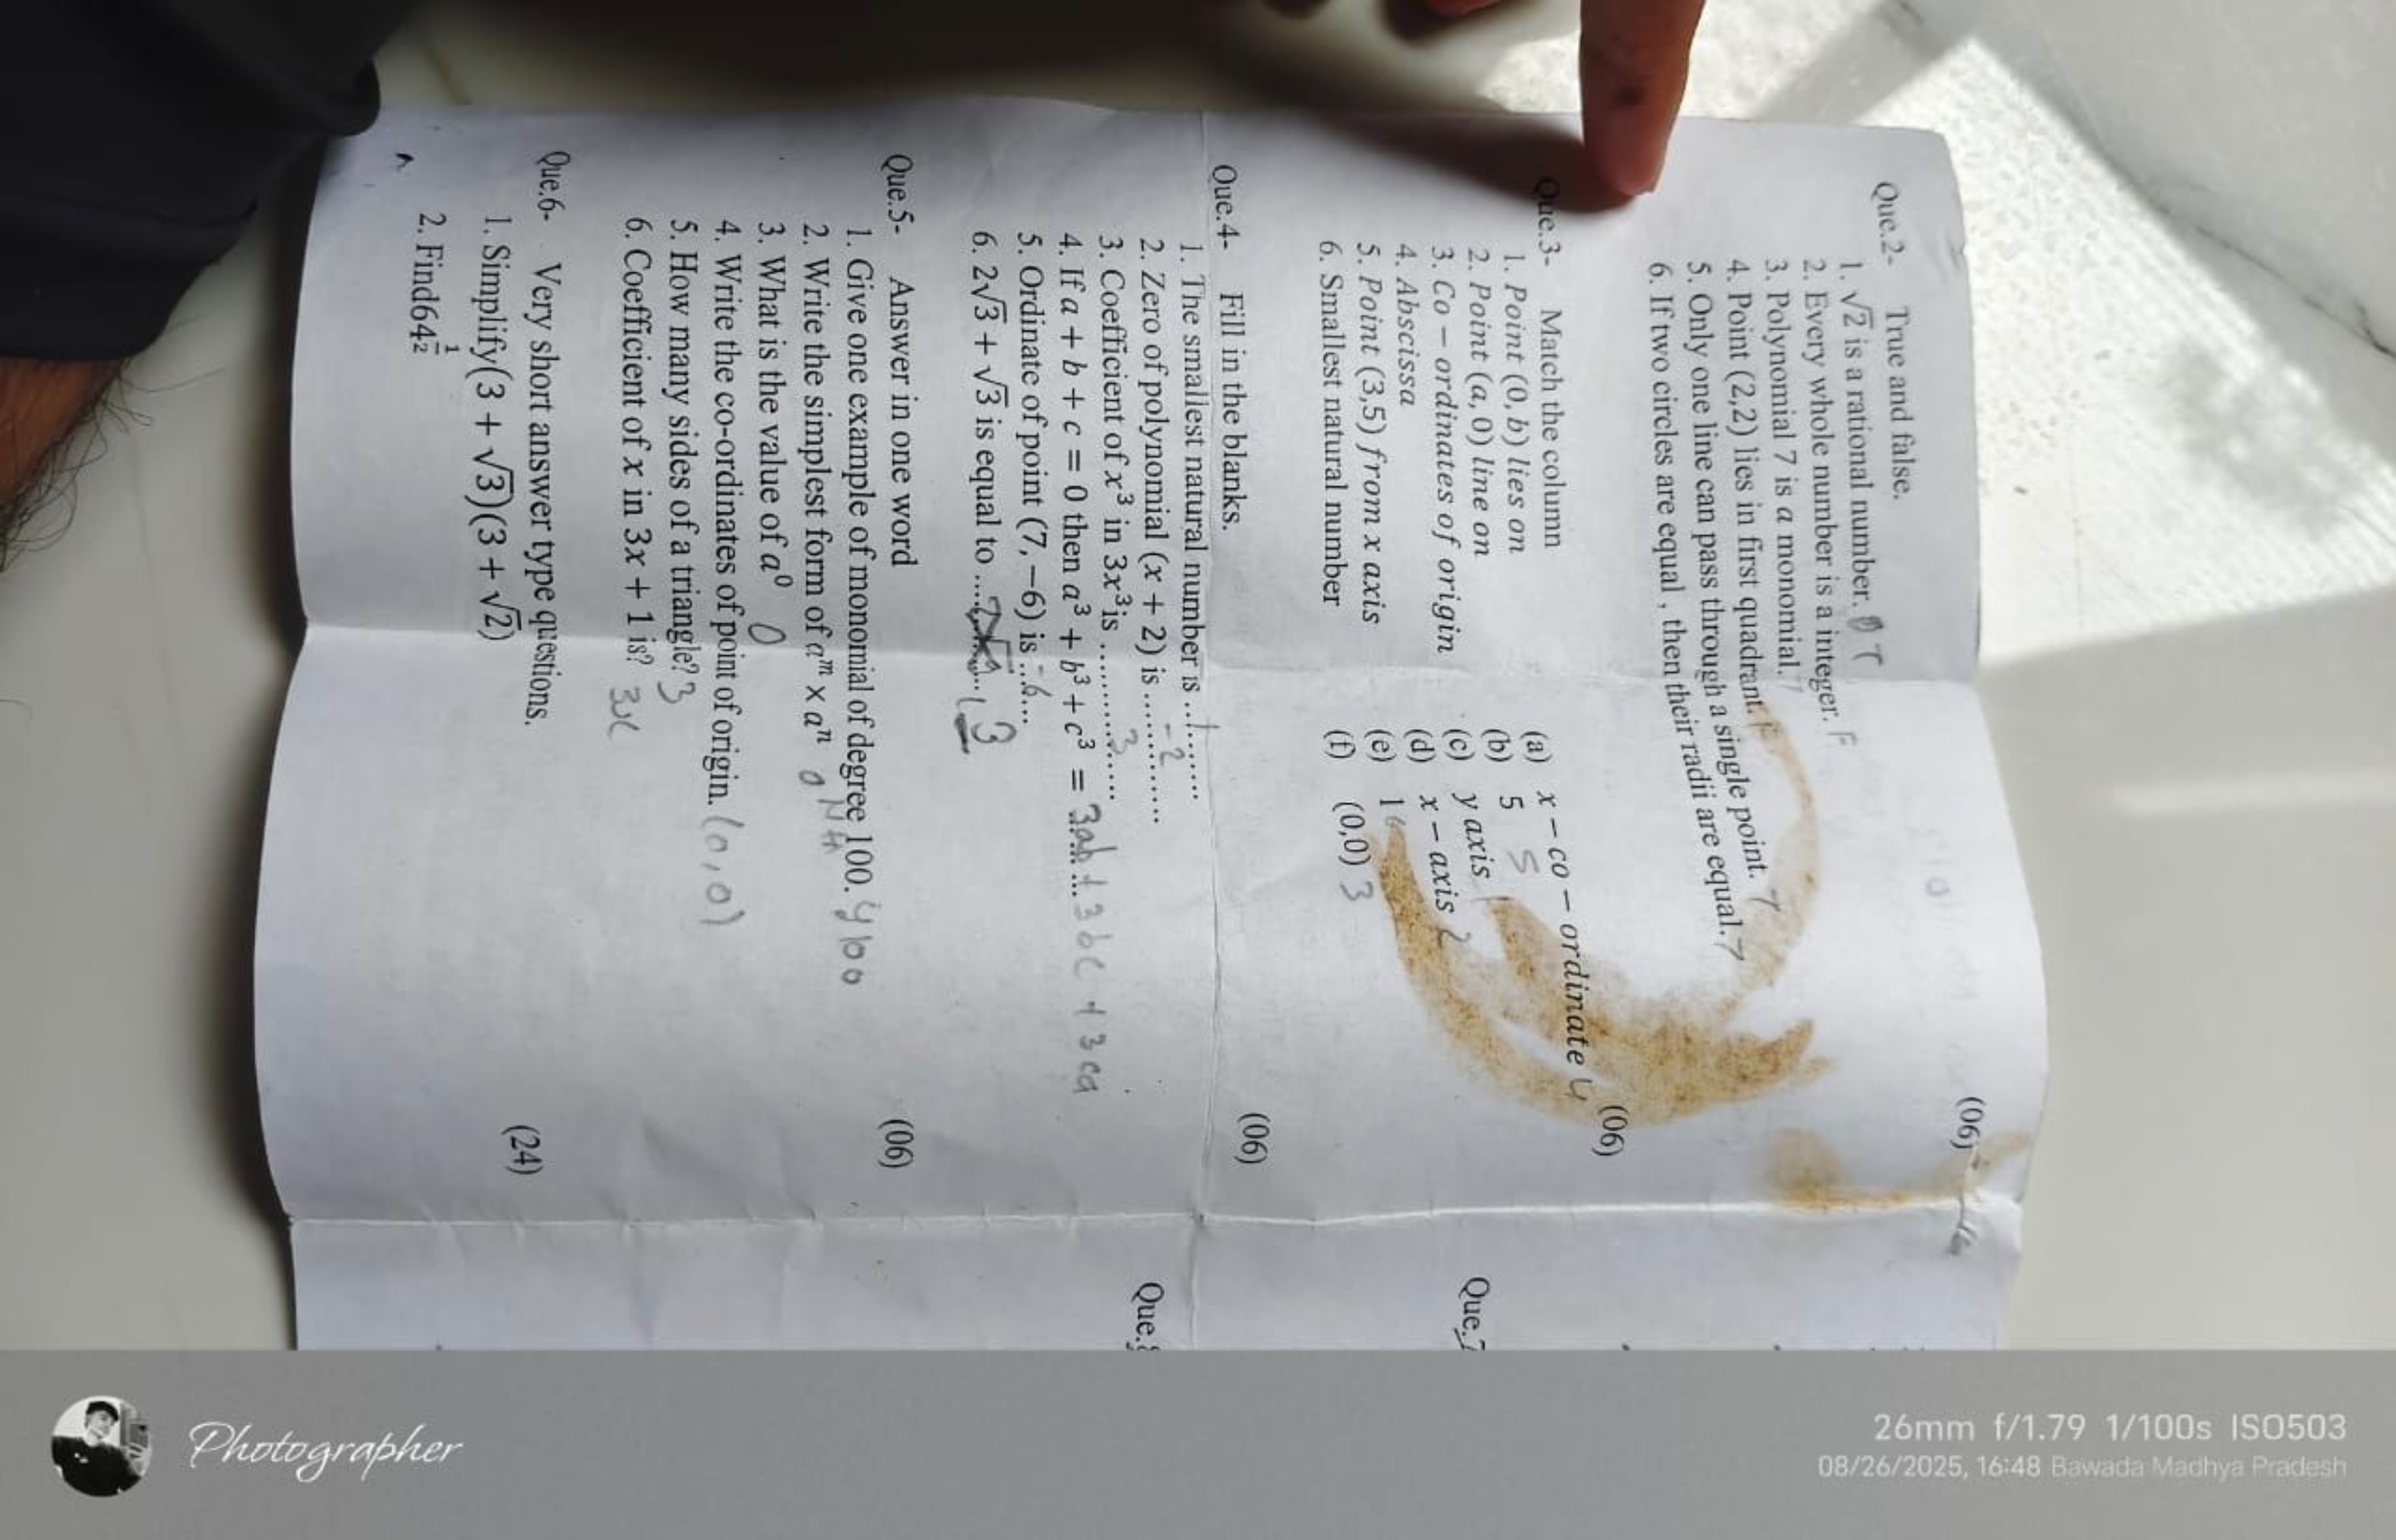 (06)
Que.2- True and false.
1. √2 is a rational number. T
2. Every whole number is a integer. F
3. Polynomial 7 is a monomial. T
4. Point (2,2) lies in first quadrant. F
5. Only one line can pass through a single point. T
6. If two circles are equal , then their radii are equal. T
Que.3- Match the column (06)
1. Point (0, b) lies on (a) x – co – ordinate 4
2. Point (a, 0) line on (b) 5 5
3. Co – ordinates of origin (c) y axis 1
4. Abscissa (d) x – axis 2
5. Point (3,5) from x axis (e) 1 6
6. Smallest natural number (f) (0,0) 3
Que.4- Fill in the blanks. (06)
1. The smallest natural number is ..1.......
2. Zero of polynomial (x + 2) is ....-2........
3. Coefficient of x³ in 3x³ is ..........3.....
4. If a + b + c = 0 then a³ + b³ + c³ = 3ab + 3bc + 3ca
5. Ordinate of point (7, −6) is ..-6...
6. 2√3 + √3 is equal to ....
Que.5- Answer in one word (06)
1. Give one example of monomial of degree 100. y100
2. Write the simplest form of aᵐ × aⁿ
3. What is the value of a⁰ 0
4. Write the co-ordinates of point of origin. (0,0)
5. How many sides of a triangle? 3
6. Coefficient of x in 3x + 1 is? 3x
Que.6- Very short answer type questions. (24)
1. Simplify(3 + √3)(3 + √2)
2. Find64^(1/2)
Que.7
Que.
Photographer
26mm f/1.79 1/100s ISO503
08/26/2025, 16:48 Bawada Madhya Pradesh